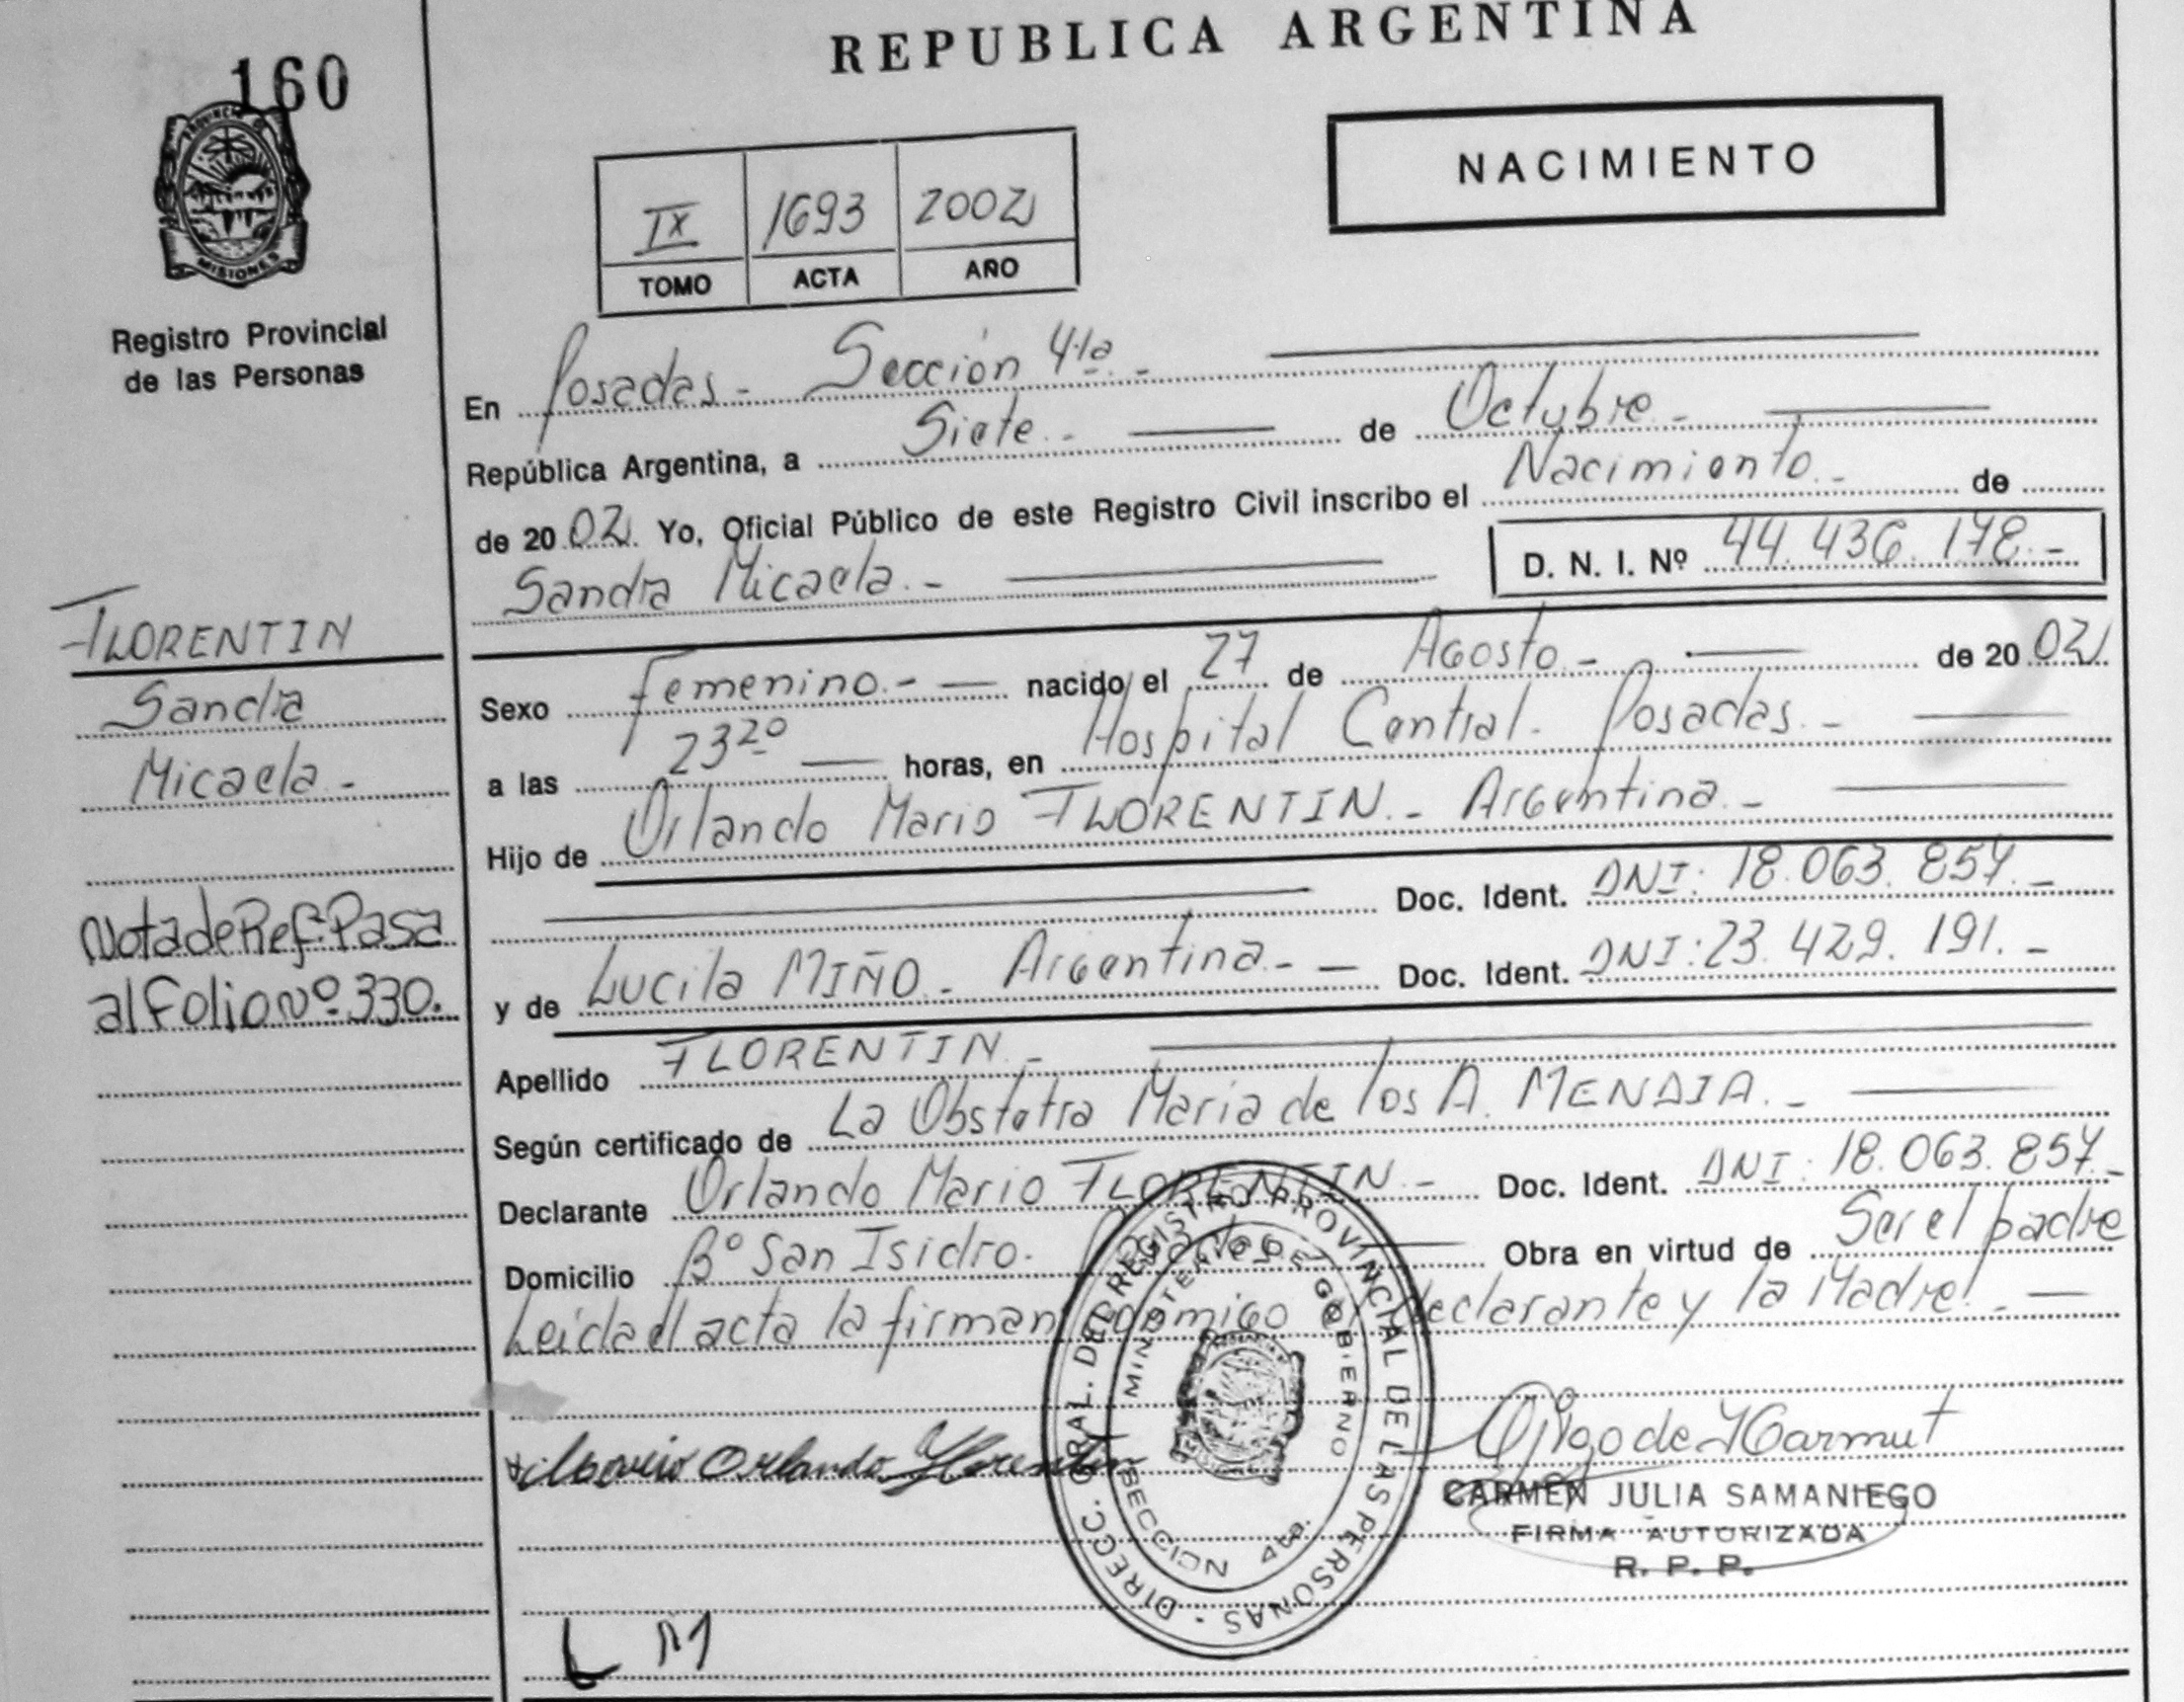 REPUBLICA ARGENTINA
160
PROVINCIA D
MISIONES
Registro Provincial
de las Personas
NACIMIENTO
IX 1693 2002
TOMO ACTA AÑO
En Posadas - Sección 4ta -
República Argentina, a Siete - de Octubre -
de 2002. Yo, Oficial Público de este Registro Civil inscribo el Nacimiento - de
Sandra Micaela. - D. N. I. Nº 44.436.178. -
FLORENTIN
Sandra
Micaela -
Nota de Ref: Pasa
al Folio Nº 330.
Sexo Femenino. - nacido el 27 de Agosto - de 2002
a las 23 20 horas, en Hospital Central. Posadas. -
Hijo de Orlando Mario FLORENTIN. - Argentina. -
Doc. Ident. DNI: 18.063.857. -
y de Lucila MIÑO. - Argentina. - Doc. Ident. DNI: 23.429.191. -
Apellido FLORENTIN. -
Según certificado de La Obstetra Maria de los A. MENDIA. -
Declarante Orlando Mario FLORENTIN. - Doc. Ident. DNI: 18.063.857. -
Domicilio Bº San Isidro. Posadas Obra en virtud de Ser el padre
Leída el acta la firman conmigo el declarante y la Madre. -
DIRECC. GRAL. DEL REGISTRO PROVINCIAL DE LAS PERSONAS -
MINISTERIO DE GOBIERNO
SECCION 4ta.
Mario Orlando Florentin
CARMEN JULIA SAMANIEGO
FIRMA AUTORIZADA
R. P. P.
L M